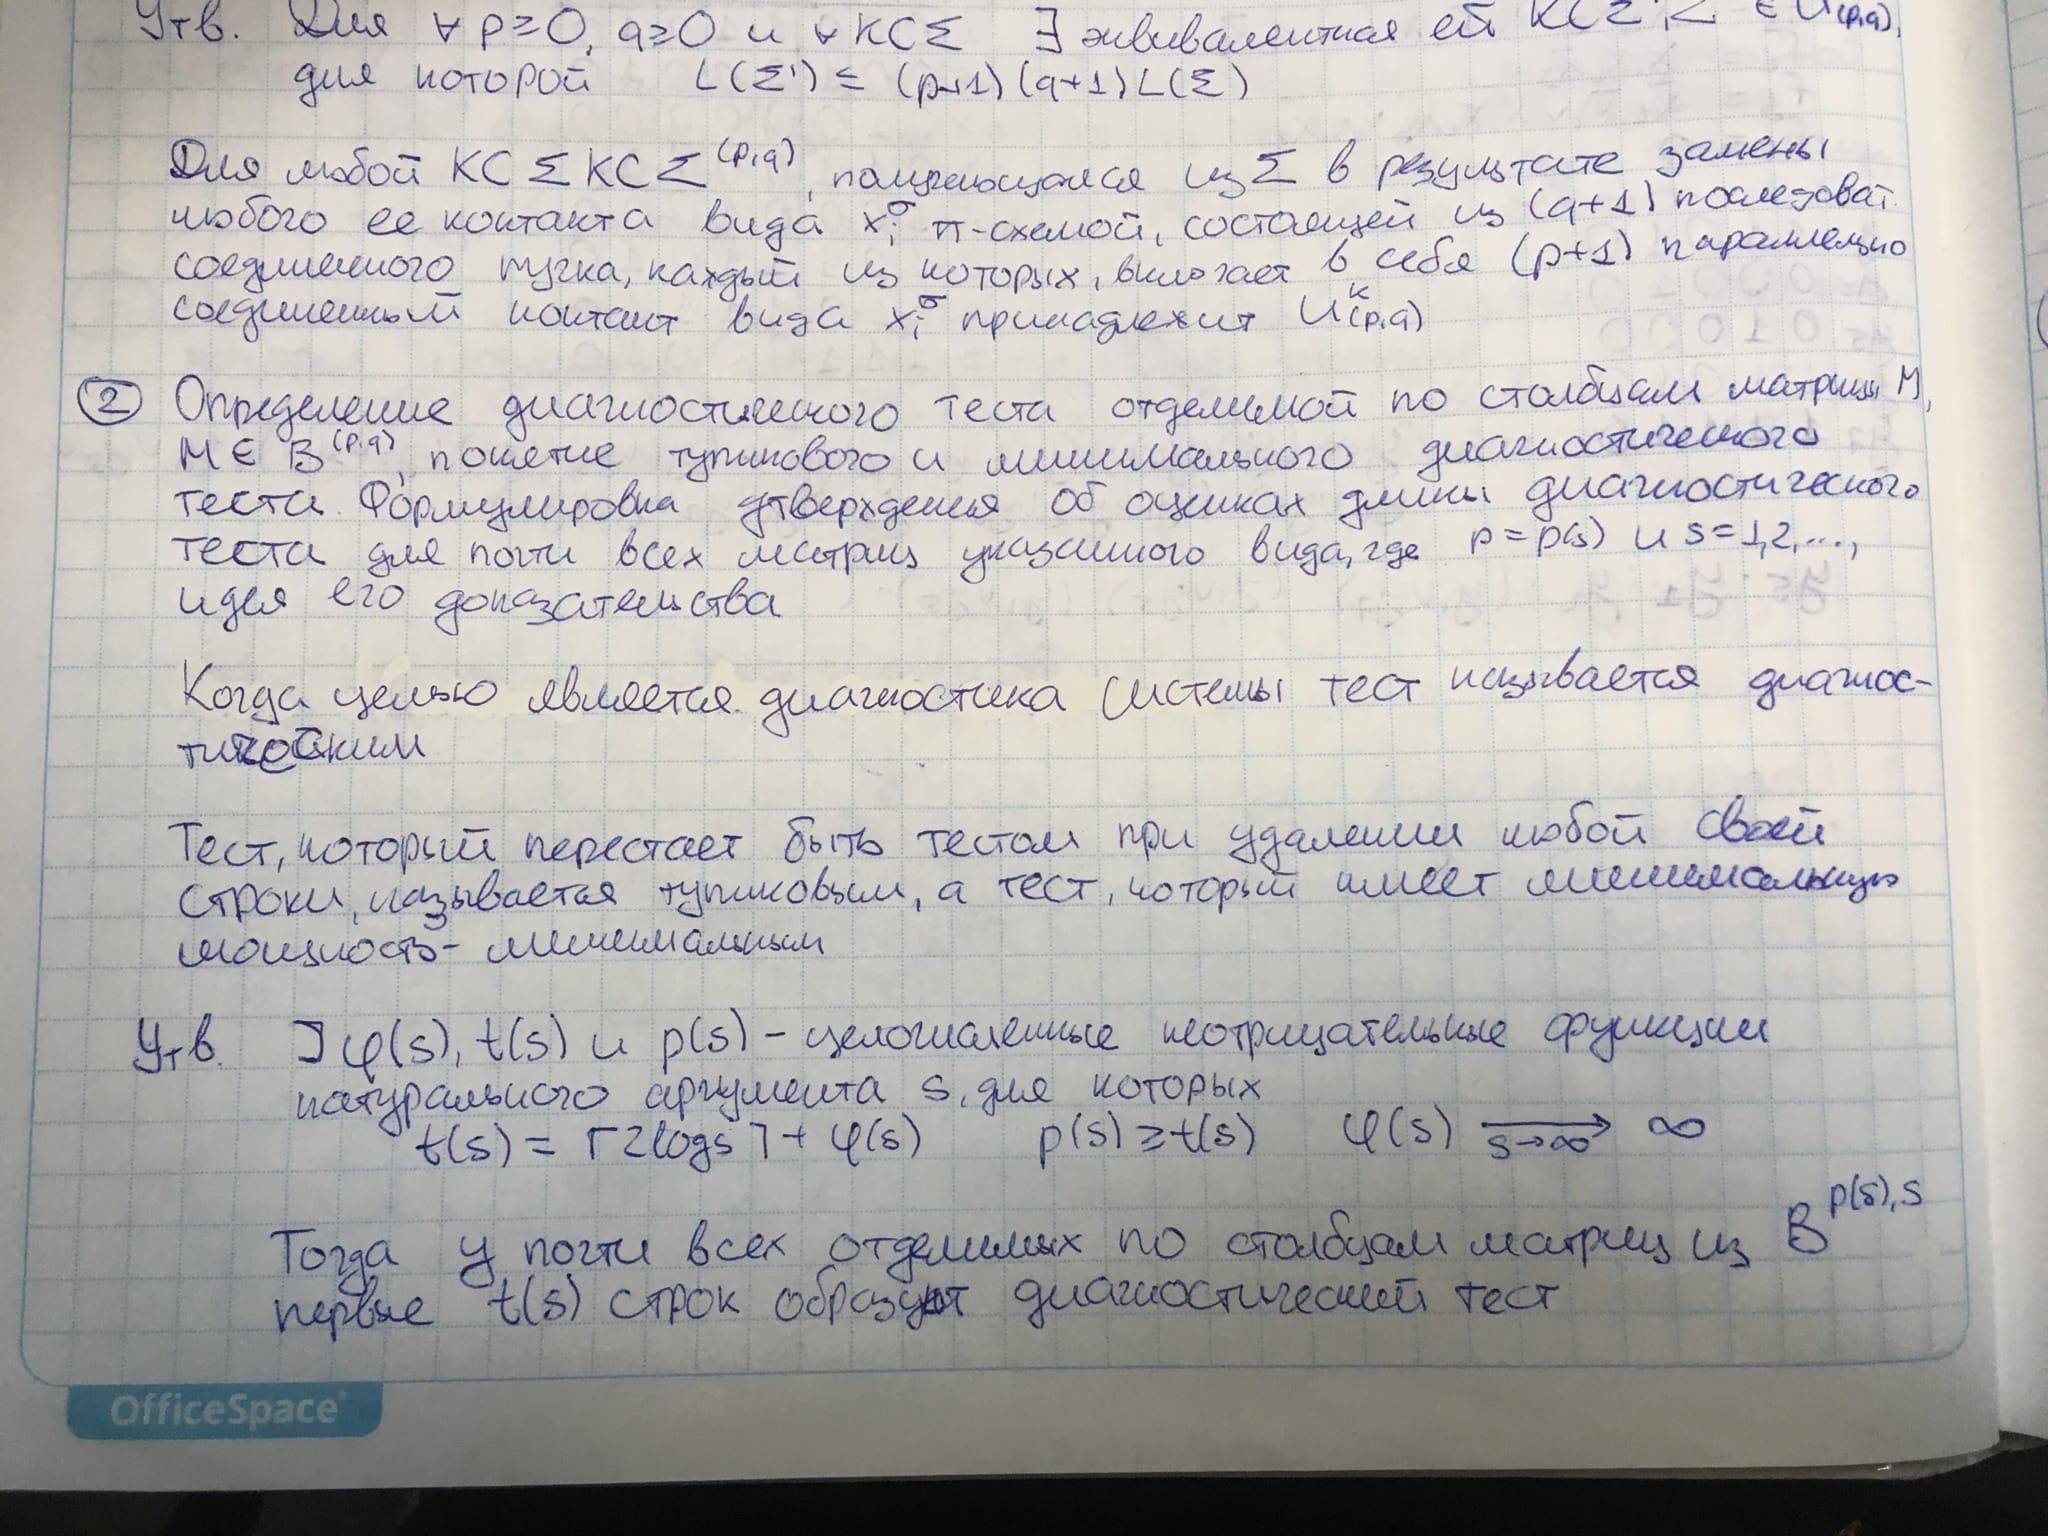 Утв. Для ∀ p≥0, q≥0 и ∀ КСΣ ∃ эквивалентная ей КСΣ', Σ' ∈ U(p,q),
для которой L(Σ') ≤ (p+1)(q+1)L(Σ)
Для любой КС Σ КС Σ^(p,q), получающаяся из Σ в результате замены
любого ее контакта вида xᵢ^σ π-схемой, состоящей из (q+1) последоват.
соединенного пучка, каждый из которых, включает в себя (p+1) параллельно
соединенный контакт вида xᵢ^σ принадлежит U^K(p,q)
2 Определение диагностического теста отделимой по столбцам матрицы M,
M ∈ B^(p,q), понятие тупикового и минимального диагностического
теста. Формулировка утверждения об оценках длины диагностического
теста для почти всех матриц указанного вида, где p=p(s) и s=1,2,...,
идея его доказательства
Когда целью является диагностика системы тест называется диагнос-
тическим
Тест, который перестает быть тестом при удалении любой своей
строки, называется тупиковым, а тест, который имеет минимальную
мощность - минимальным
Утв. ∃ φ(s), t(s) и p(s) - целочисленные неотрицательные функции
натурального аргумента s, для которых
t(s) = ⌈2logs⌉ + φ(s) p(s) ≥ t(s) φ(s) →(s→∞) ∞
Тогда у почти всех отделимых по столбцам матриц из B^p(s),s
первые t(s) строк образуют диагностический тест
OfficeSpace